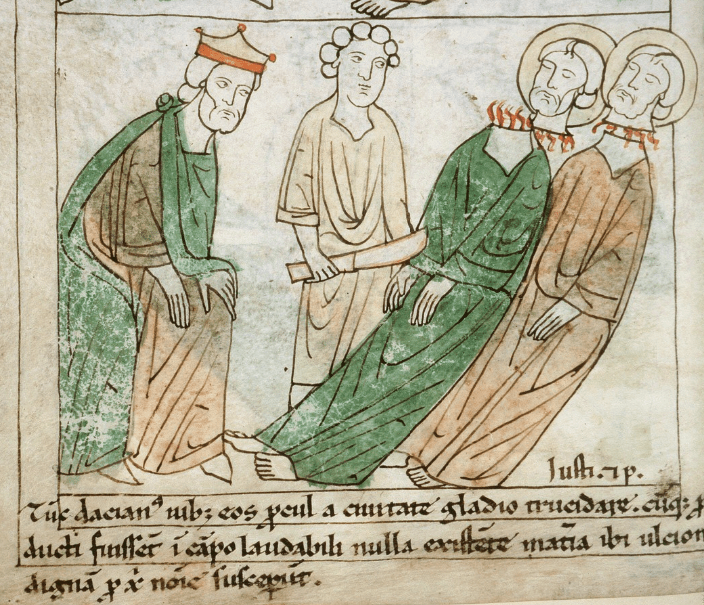 Iusti. ⁊ p.
Tūc dacianꝰ iubꝫ eos ꝑcul a ciuitate gladio trucidare. cūqꝫ ꝑ
ducti fuissēt ī cāpo laudabili nulla existēte matīa ibi ulcion
dignā ꝓ xp̄i noīe susceꝑūt.